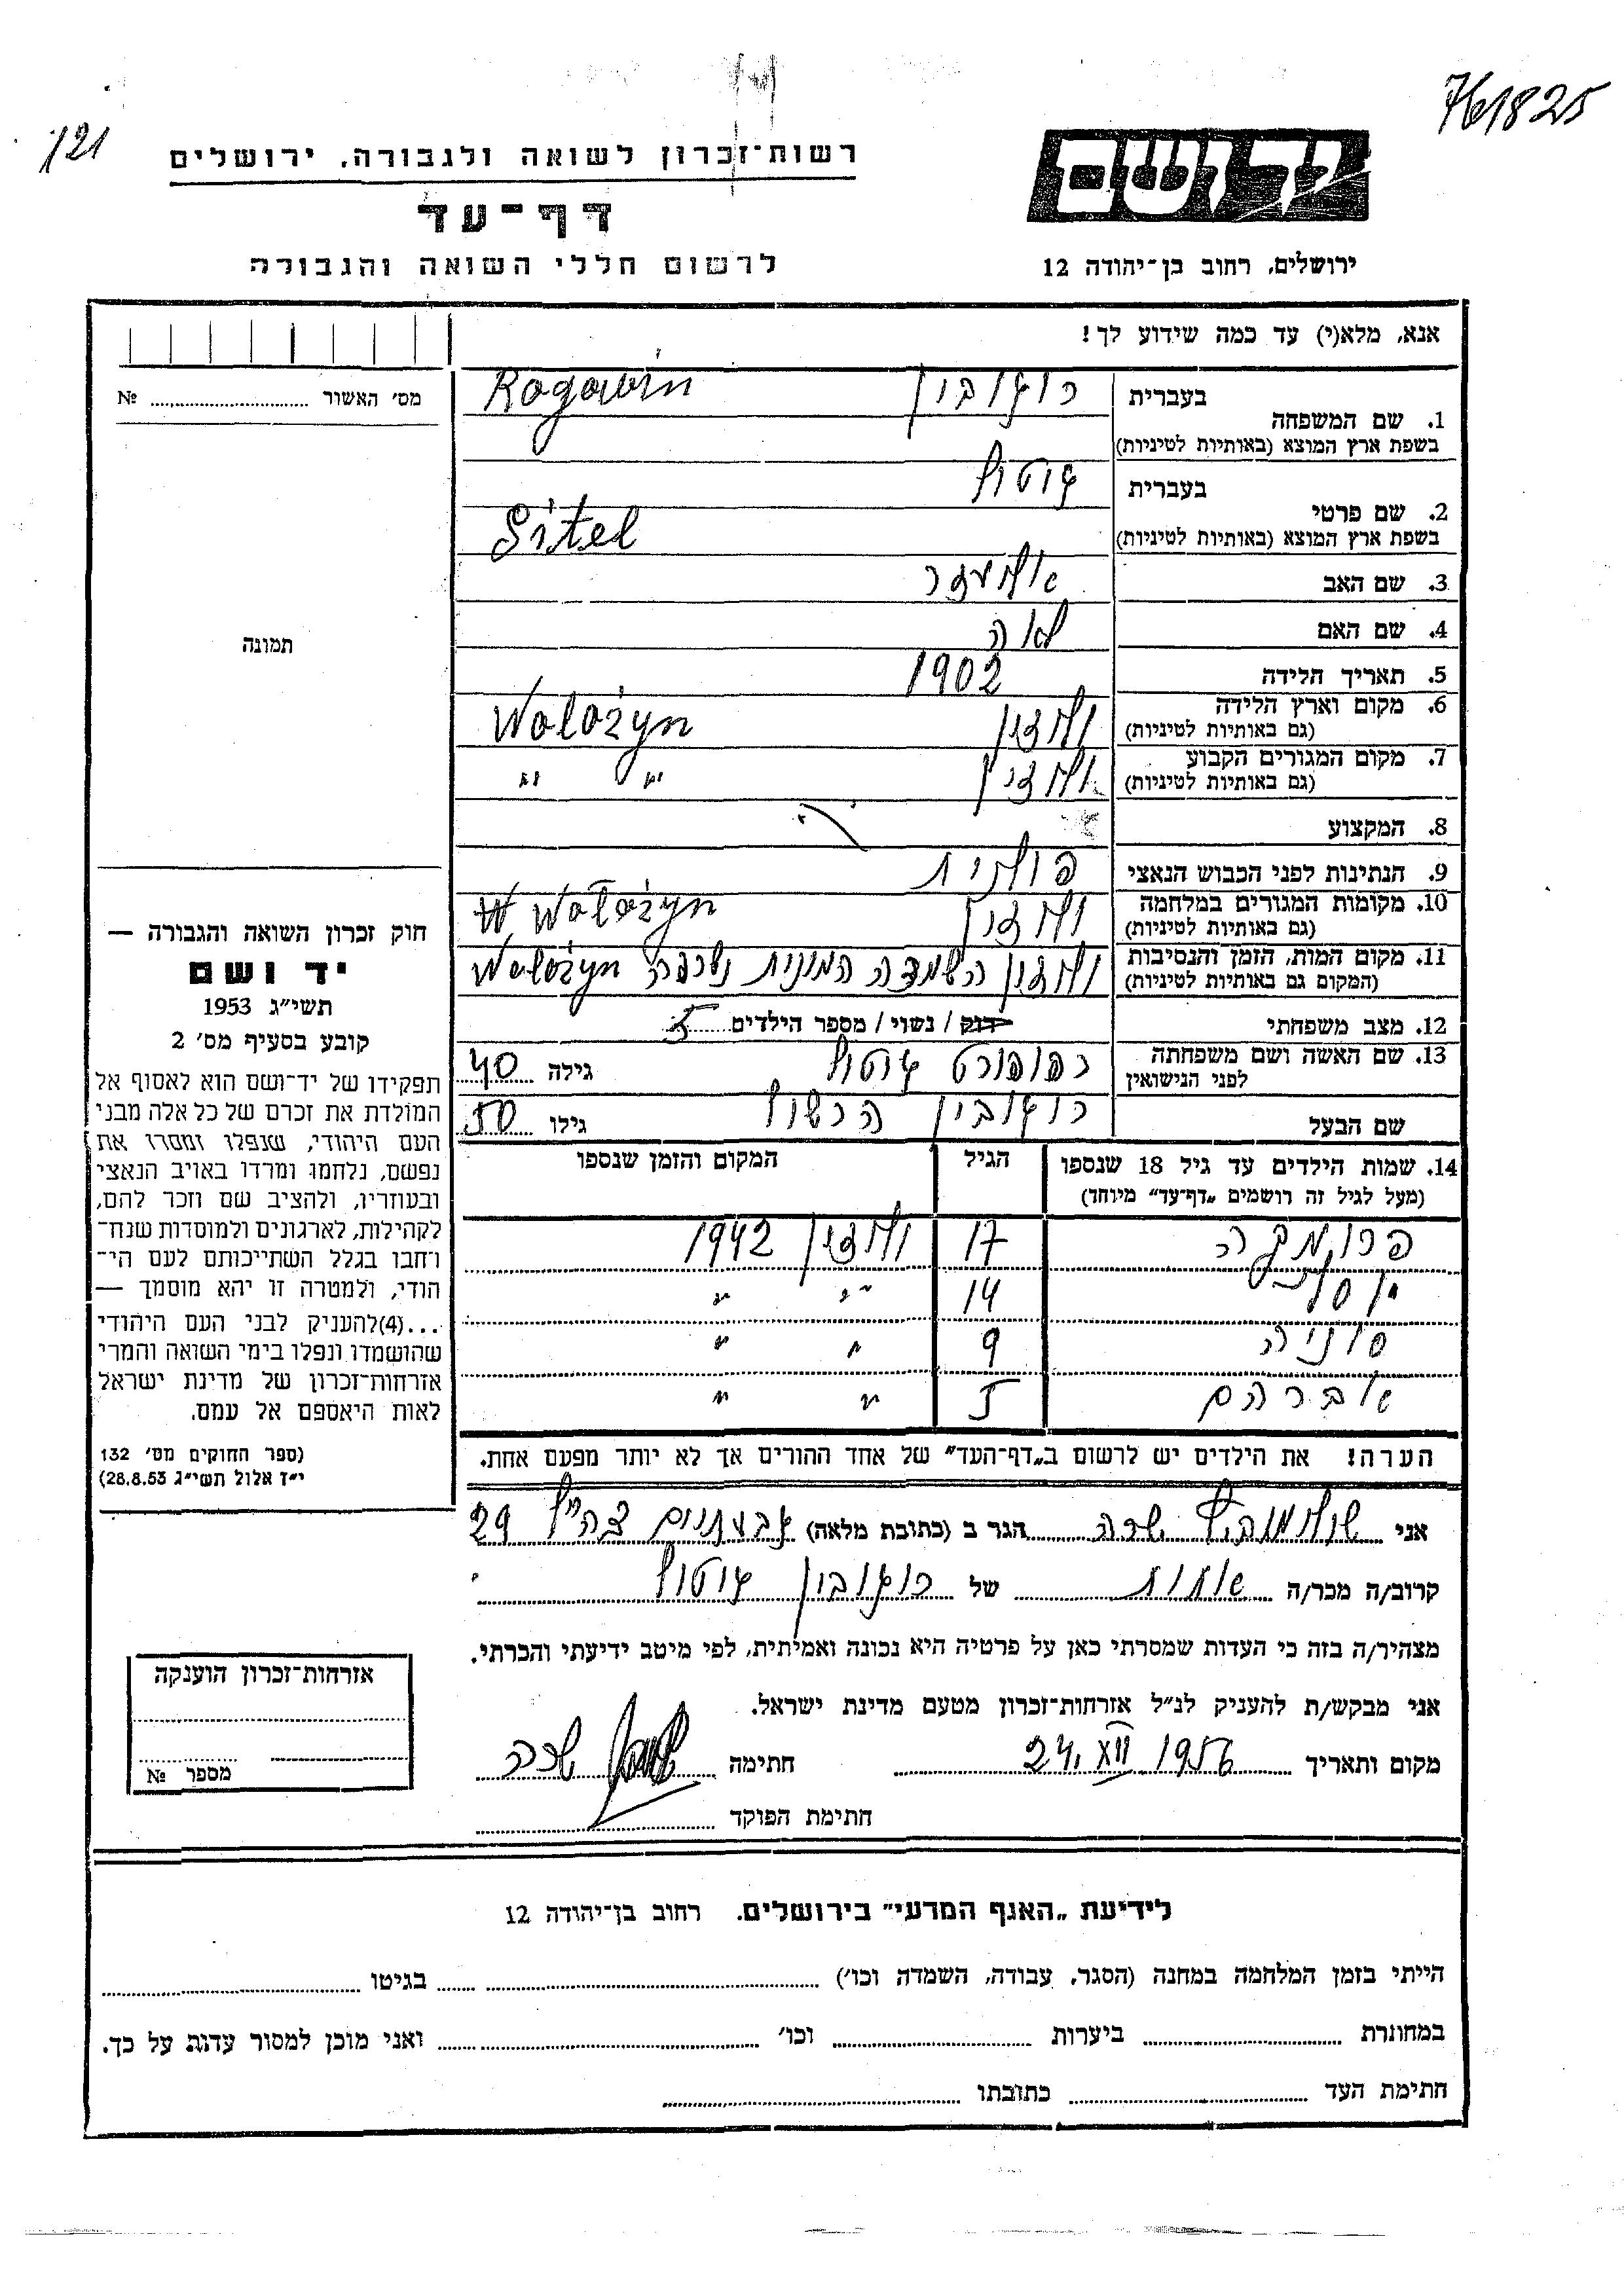 761825
121
רשות־זכרון לשואה ולגבורה, ירושלים
דף־עד
לרשום חללי השואה והגבורה
ירושלים, רחוב בן־יהודה 12
אנא, מלא(י) עד כמה שידוע לך!
מס׳ האשור № 
1. שם המשפחה בעברית רוגובין Rogowin
בשפת ארץ המוצא (באותיות לטיניות)
2. שם פרטי בעברית גיטול
בשפת ארץ המוצא (באותיות לטיניות) Gitel
3. שם האב
4. שם האם
5. תאריך הלידה 1902
6. מקום וארץ הלידה (גם באותיות לטיניות) ולוז׳ין Wolożyn
7. מקום המגורים הקבוע (גם באותיות לטיניות) ולוז׳ין " "
8. המקצוע
9. הנתינות לפני הכבוש הנאצי פולנית
10. מקומות המגורים במלחמה (גם באותיות לטיניות) ולוזין W Wolożyn
11. מקום המות, הזמן והנסיבות (המקום גם באותיות לטיניות) ולוזין השמדה המונית נשרפה Wolożyn
12. מצב משפחתי רווק / נשוי / מספר הילדים 5
13. שם האשה ושם משפחתה לפני הנישואין רפופורט גיטול גילה 40
שם הבעל רוגובין הרשול גילו 50
14. שמות הילדים עד גיל 18 שנספו (מעל לגיל זה רושמים „דף־עד” מיוחד) הגיל המקום והזמן שנספו
פרומקה 17 ולוזין 1942
יוסל 14 " "
סוניה 9 " "
אברהם 5 " "
הערה! את הילדים יש לרשום ב„דף־העד” של אחד ההורים אך לא יותר מפעם אחת.
אני שולמוביץ שרה הגר ב (כתובת מלאה) גבעתיים צה״ל 29
קרוב/ה מכר/ה אחות של רוגובין גיטול
מצהיר/ה בזה כי העדות שמסרתי כאן על פרטיה היא נכונה ואמיתית, לפי מיטב ידיעתי והכרתי.
אני מבקש/ת להעניק לנ״ל אזרחות־זכרון מטעם מדינת ישראל.
מקום ותאריך 24. XII 1956 חתימה שרה
חתימת הפוקד
תמונה
חוק זכרון השואה והגבורה —
יד ושם
תשי״ג 1953
קובע בסעיף מס׳ 2
תפקידו של יד־ושם הוא לאסוף אל
המולדת את זכרם של כל אלה מבני
העם היהודי, שנפלו ומסרו את
נפשם, נלחמו ומרדו באויב הנאצי
ובעוזריו, ולהציב שם וזכר להם,
לקהילות, לארגונים ולמוסדות שנח־
רחבו בגלל השתייכותם לעם הי־
הודי, ולמטרה זו יהא מוסמך —
...(4)להעניק לבני העם היהודי
שהושמדו ונפלו בימי השואה והמרי
אזרחות־זכרון של מדינת ישראל
לאות היאספם אל עמם.
(ספר החוקים מס׳ 132
י״ז אלול תשי״ג 28.8.53)
אזרחות־זכרון הוענקה
מספר №
לידיעת „האגף המדעי” בירושלים. רחוב בן־יהודה 12
הייתי בזמן המלחמה במחנה (הסגר, עבודה, השמדה וכו׳) בגיטו
במחתרת ביערות וכו׳ ואני מוכן למסור עדות על כך.
חתימת העד כתובתו